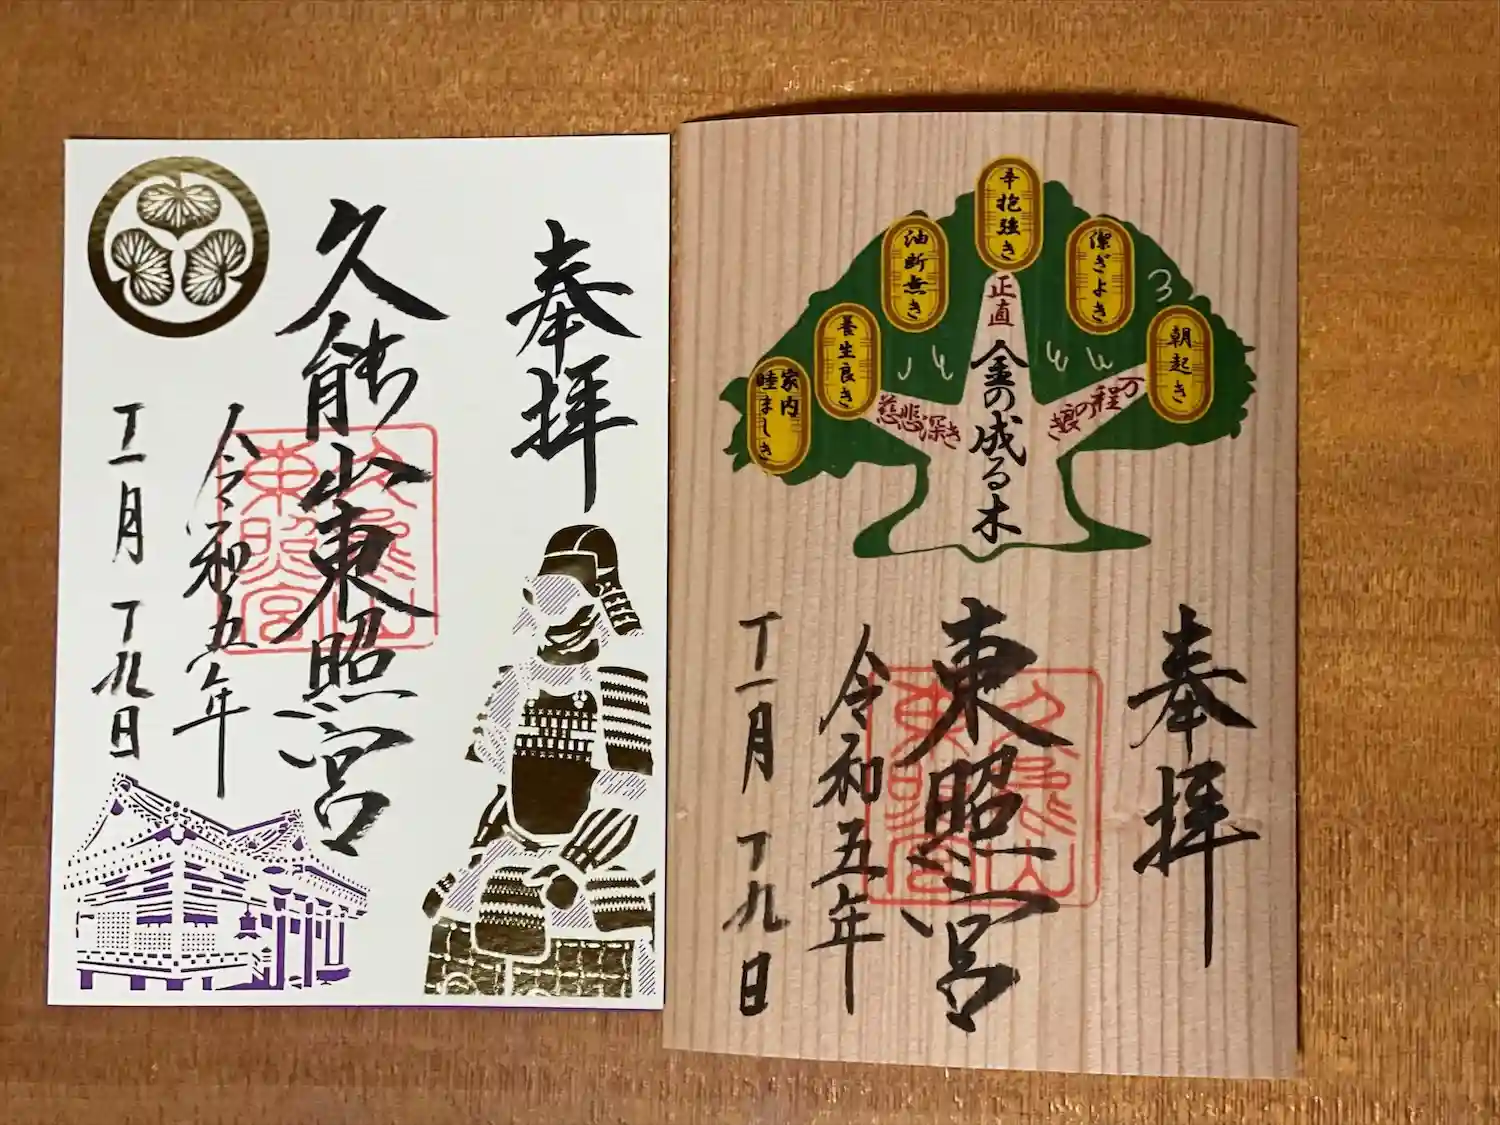 奉拝
久能山東照宮
久能山
東照宮
令和五年
十一月十九日
朝起き
潔ぎよき
辛抱強き
油断無き
養生良き
家内
睦ましき
正直
万程の良き
慈悲深き
金の成る木
奉拝
東照宮
久能山
東照宮
令和五年
十一月十九日